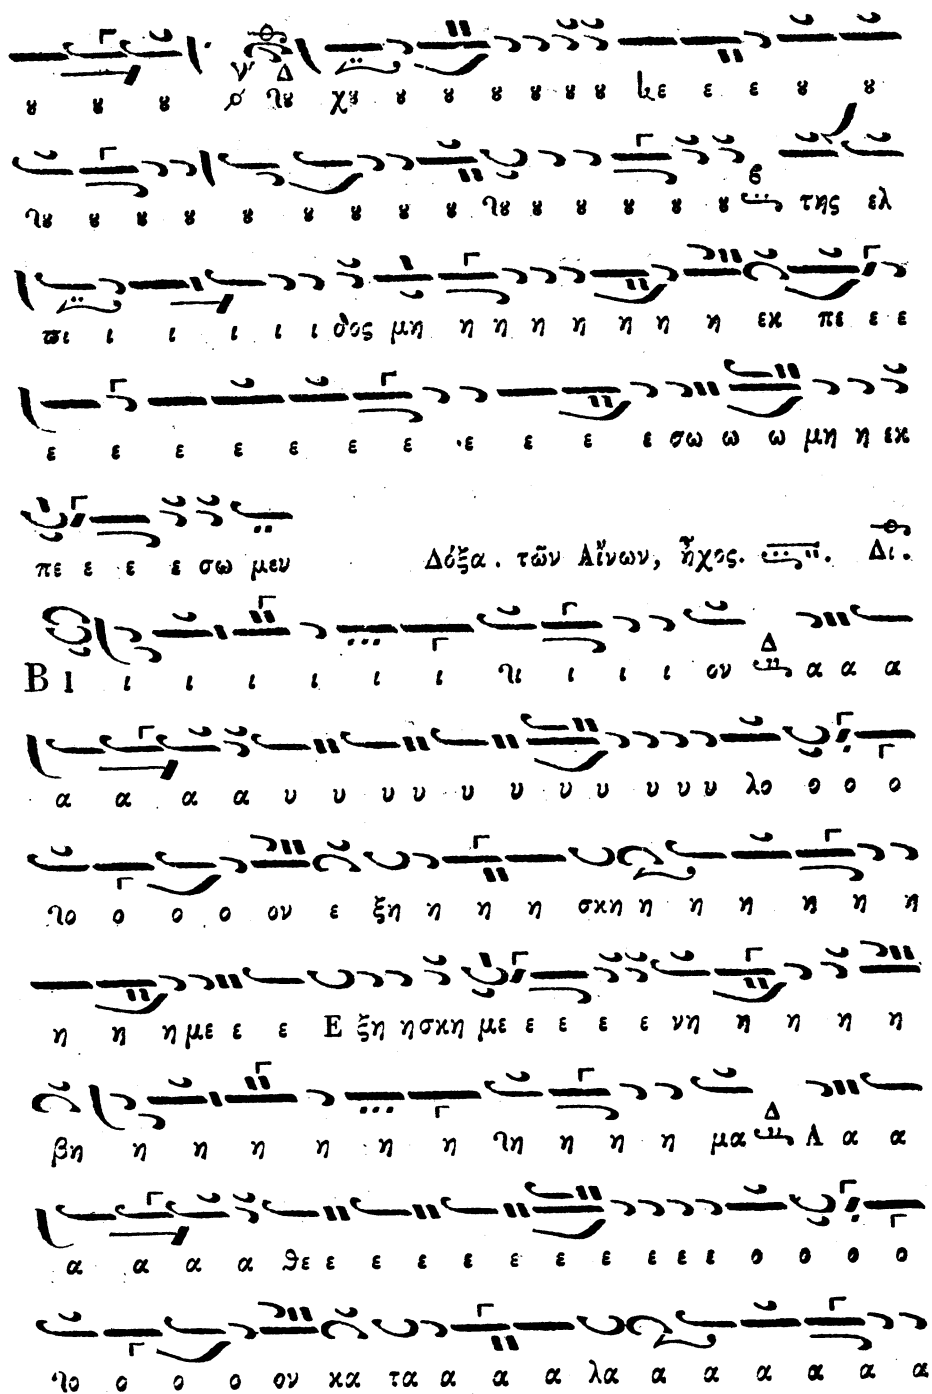 ȣ ȣ ȣ ȣ χȣ ȣ ȣ ȣ ȣ ȣ ȣ ȣ κε ε ε ȣ ȣ
ȣ ȣ ȣ ȣ ȣ ȣ ȣ ȣ ȣ ȣ ȣ ȣ ȣ ȣ ȣ της ελ
ϖι ι ι ι ι ι δος μη η η η η η η η εκ πε ε ε
ε ε ε ε ε ε ε ε ε ε ε σω ω ω μη η εκ
πε ε ε ε σω μεν Δόξα. τῶν Αἴνων, ἦχος. Δι.
Β ι ι ι ι ι ι ι τι ι ι ι ον Δ α α α
α α α α υ υ υ υ υ υ υ υ υ υ υ λο ο ο ο
το ο ο ο ον ε ξη η η η σκη η η η η η η
η η η με ε ε Ε ξη η σκη με ε ε ε ε νη η η η η
βη η η η η η η τη η η η μα Δ Α α α
α α α α θε ε ε ε ε ε ε ε ε ε ε ο ο ο ο
το ο ο ο ον κα τα α α α λα α α α α α α